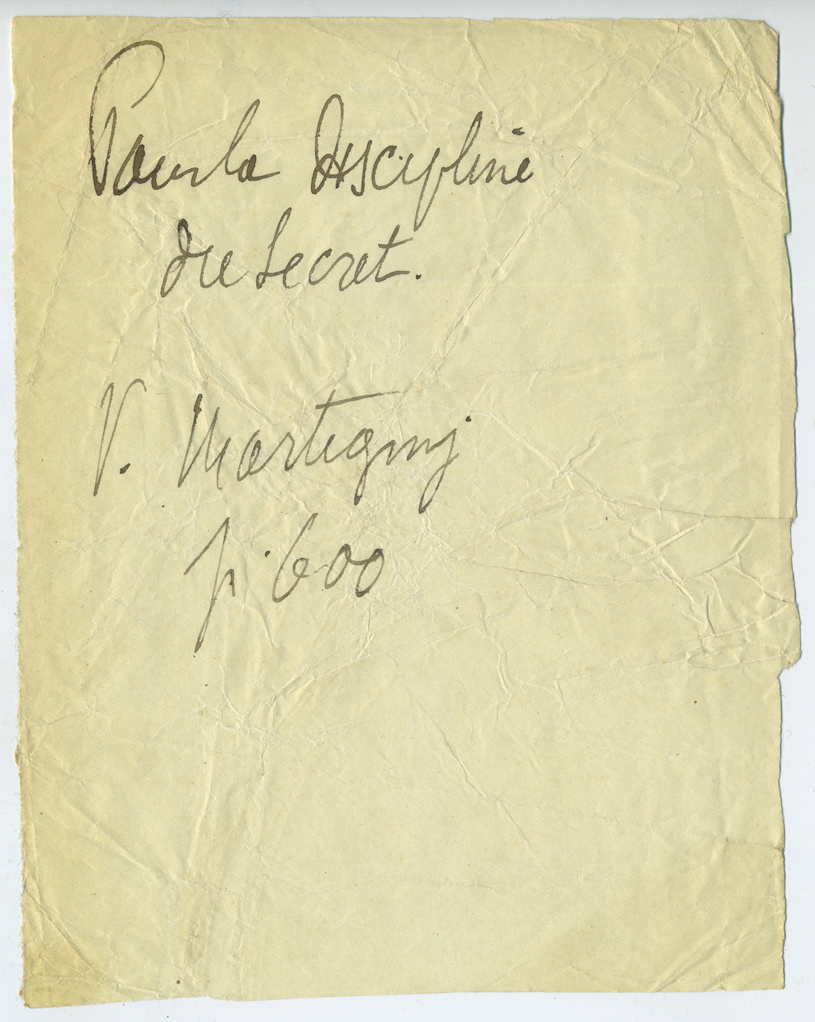 Pour la Discipline
du Secret.
V. Martigny
p. 600